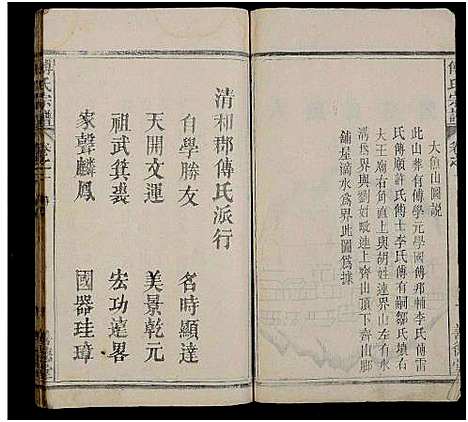 傅氏宗譜
大魚山圖説
此山葬有傅學元學國傅邦輔李氏傅雷
氏傅願許氏傅士李氏傅有嗣鄒氏填右
大王廟右角直上與胡姓連界山左有水
溝為界與劉姓毗連上齊山頂下齊山腳
鋪屋滴水為界此圖為據
清和郡傅氏派行
自學勝友 名時顯達
天開文運 美景乾元
祖武箕裘 宏功達畧
家聲麟鳳 國器珪璋
傅氏宗譜